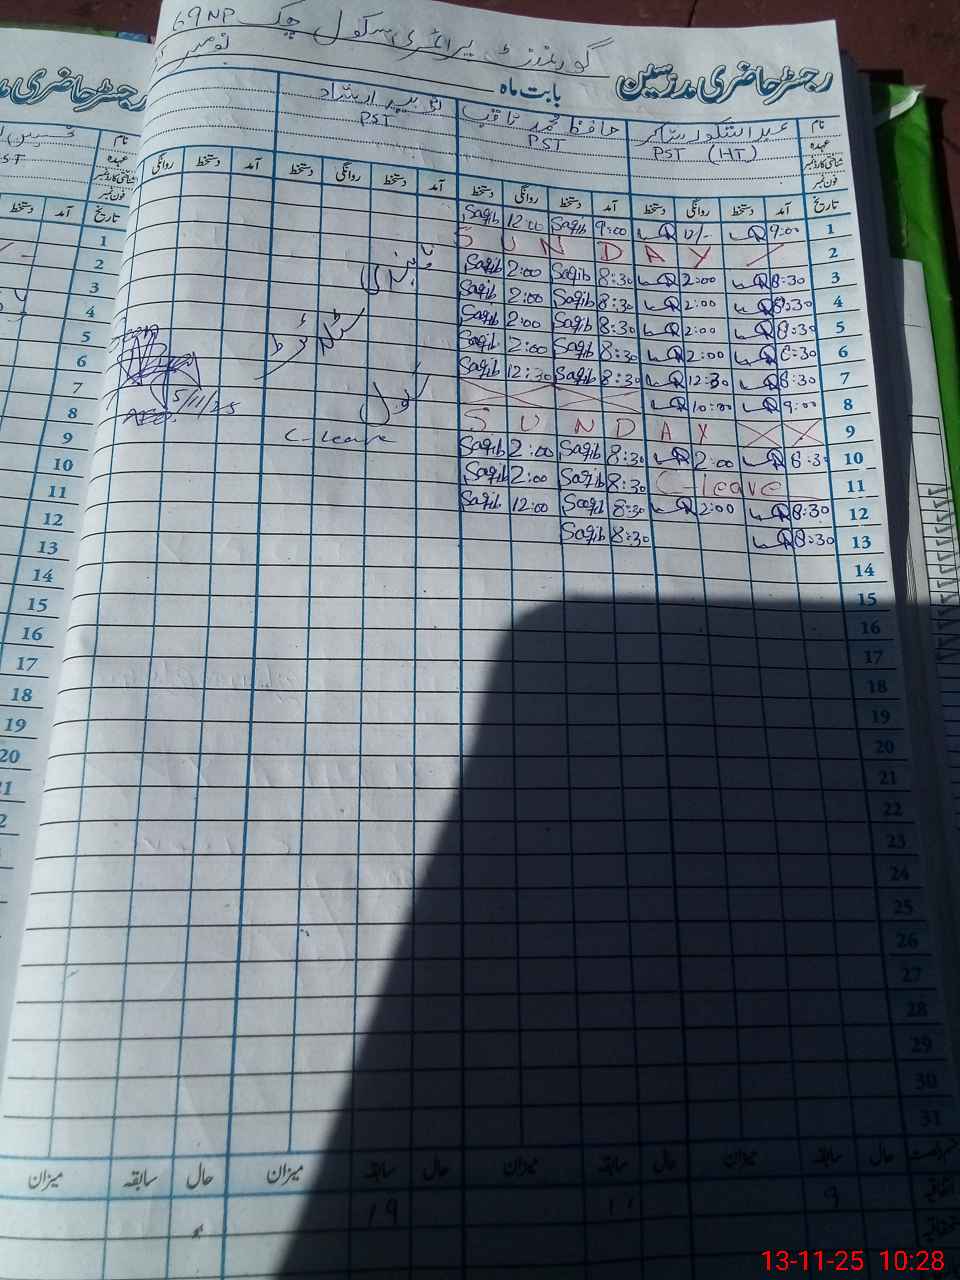 گورنمنٹ پرائمری سکول چک 69NP
رجسٹر حاضری مدرسین بابت ماہ نومبر
نام عبدالشکور حافظ محمد ثاقب
عہدہ PST (HT) PST PST
شناختی کارڈ نمبر
فون نمبر
تاریخ آمد دستخط روانگی دستخط آمد دستخط روانگی دستخط آمد دستخط روانگی دستخط آمد دستخط روانگی
1 9:00 9:00 Saqib 12:00 Saqib
2 S U N D A Y
3 8:30 2:00 8:30 Saqib 2:00 Saqib
4 8:30 2:00 8:30 Saqib 2:00 Saqib
5 8:30 2:00 8:30 Saqib 2:00 Saqib
6 8:30 2:00 8:30 Saqib 2:00 Saqib
7 8:30 12:30 8:30 Saqib 12:30 Saqib
8 9:00 10:00
9 S U N D A Y
10 8:30 2:00 8:30 Saqib 2:00 Saqib
11 C-leave 8:30 Saqib 2:00 Saqib
12 8:30 2:00 8:30 Saqib 12:00 Saqib
13 8:30 8:30 Saqib
14
15
16
17
18
19
20
21
22
23
24
25
26
27
28
29
30
31
C-leave
5/11/25
حال سابقہ میزان حال سابقہ میزان حال سابقہ میزان حال سابقہ میزان
اتفاقیہ 9 11 19
رجسٹر حاضری
نام
عہدہ
شناختی کارڈ نمبر
فون نمبر
تاریخ آمد دستخط
1
2
3
4
5
6
7
8
9
10
11
12
13
14
15
16
17
18
19
20
13-11-25 10:28